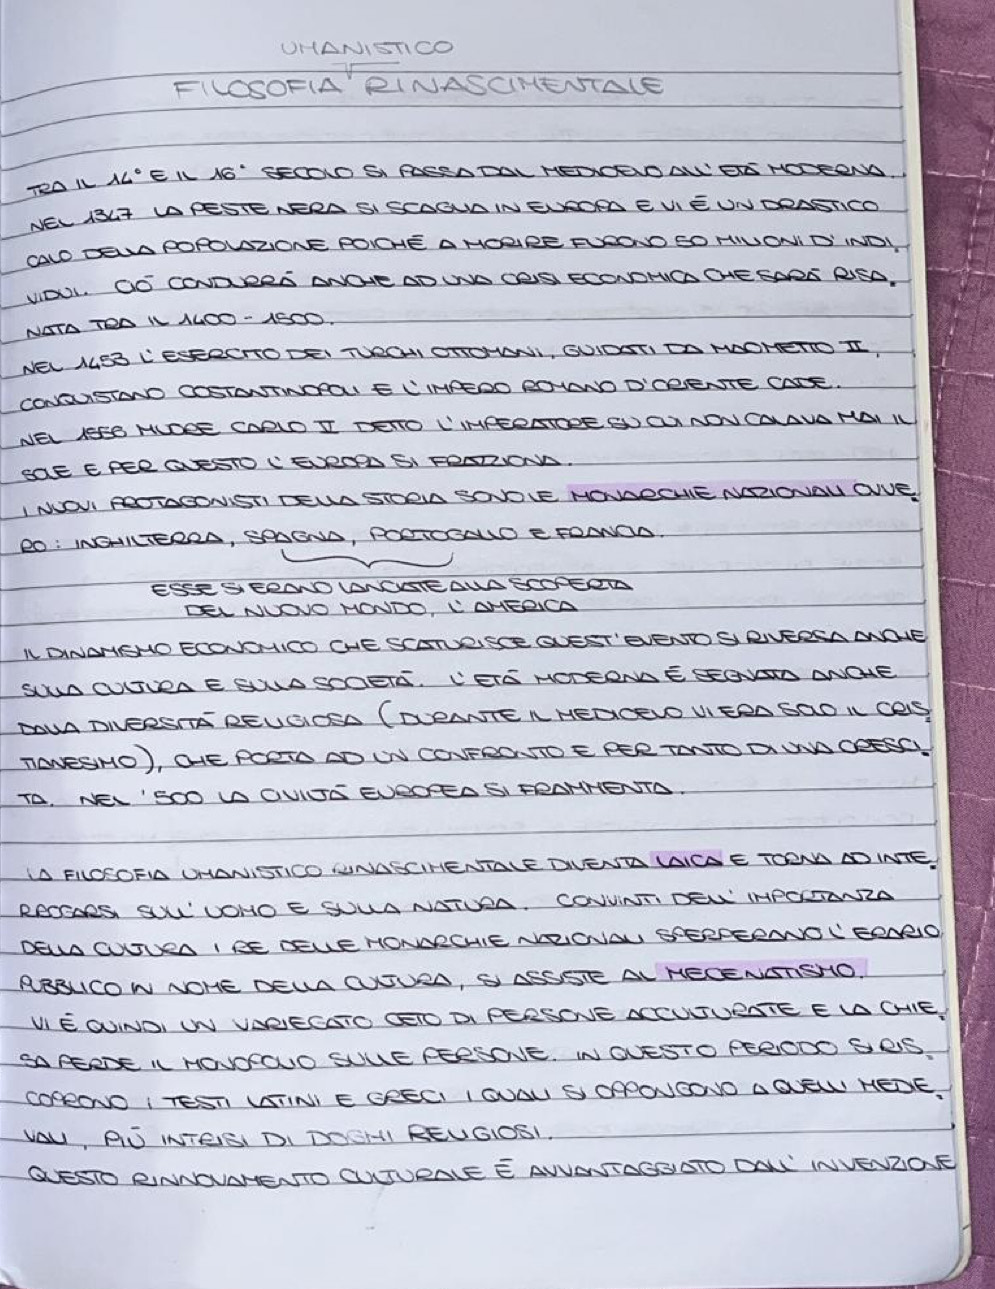 UMANISTICO
FILOSOFIA RINASCIMENTALE
TRA IL 14° E IL 16° SECOLO SI PASSA DAL MEDIOEVO ALL'ETÁ MODERNA.
NEL 1347 LA PESTE NERA SI SCAGLIA IN EUROPA E VI É UN DRASTICO
CALO DELLA POPOLAZIONE POICHÉ A MORIRE FURONO 50 MILIONI D'INDI.
VIDUI. CIÓ CONDURRÁ ANCHE AD UNA CRISI ECONOMICA CHE SARÁ RISA.
NATA TRA IL 1400 - 1500.
NEL 1453 L'ESERCITO DEI TURCHI OTTOMANI, GUIDATI DA MAOMETTO II,
CONQUISTANO COSTANTINOPOLI E L'IMPERO ROMANO D'ORIENTE CADE.
NEL 1556 MUORE CARLO II DETTO L'IMPERATORE SU CUI NON CALAVA MAI IL
SOLE E PER QUESTO L'EUROPA SI FRAZIONA.
I NUOVI PROTAGONISTI DELLA STORIA SONO LE MONARCHIE NAZIONALI OVVE.
RO: INGHILTERRA, SPAGNA, PORTOGALLO E FRANCIA.
ESSE SI ERANO LANCIATE ALLA SCOPERTA
DEL NUOVO MONDO, L'AMERICA
IL DINAMISMO ECONOMICO CHE SCATURISCE QUEST'EVENTO SI RIVERSA ANCHE
SULLA CULTURA E SULLA SOCIETÁ. L'ETÁ MODERNA É SEGNATA ANCHE
DALLA DIVERSITÁ RELIGIOSA (DURANTE IL MEDIOEVO VI ERA SOLO IL CRIS.
TIANESIMO), CHE PORTA AD UN CONFRONTO E PER TANTO DI UNA CRESCI.
TA. NEL '500 LA CIVILTÁ EUROPEA SI FRAMMENTA.
LA FILOSOFIA UMANISTICO RINASCIMENTALE DIVENTA LAICA E TORNA AD INTE.
RROGARSI SULL'UOMO E SULLA NATURA. CONVINTI DELL'IMPORTANZA
DELLA CULTURA I RE DELLE MONARCHIE NAZIONALI SPERPERANO L'ERARIO
PUBBLICO IN NOME DELLA CULTURA, SI ASSISTE AL MECENATISMO.
VI É QUINDI UN VARIEGATO CETO DI PERSONE ACCULTURATE E LA CHIE.
SA PERDE IL MONOPOLIO SULLE PERSONE. IN QUESTO PERIODO SI RIS.
COPRONO I TESTI LATINI E GRECI I QUALI SI OPPONGONO A QUELLI MEDIE.
VALI, PIÚ INTRISI DI DOGMI RELIGIOSI.
QUESTO RINNOVAMENTO CULTURALE É AVVANTAGGIATO DALL'INVENZIONE